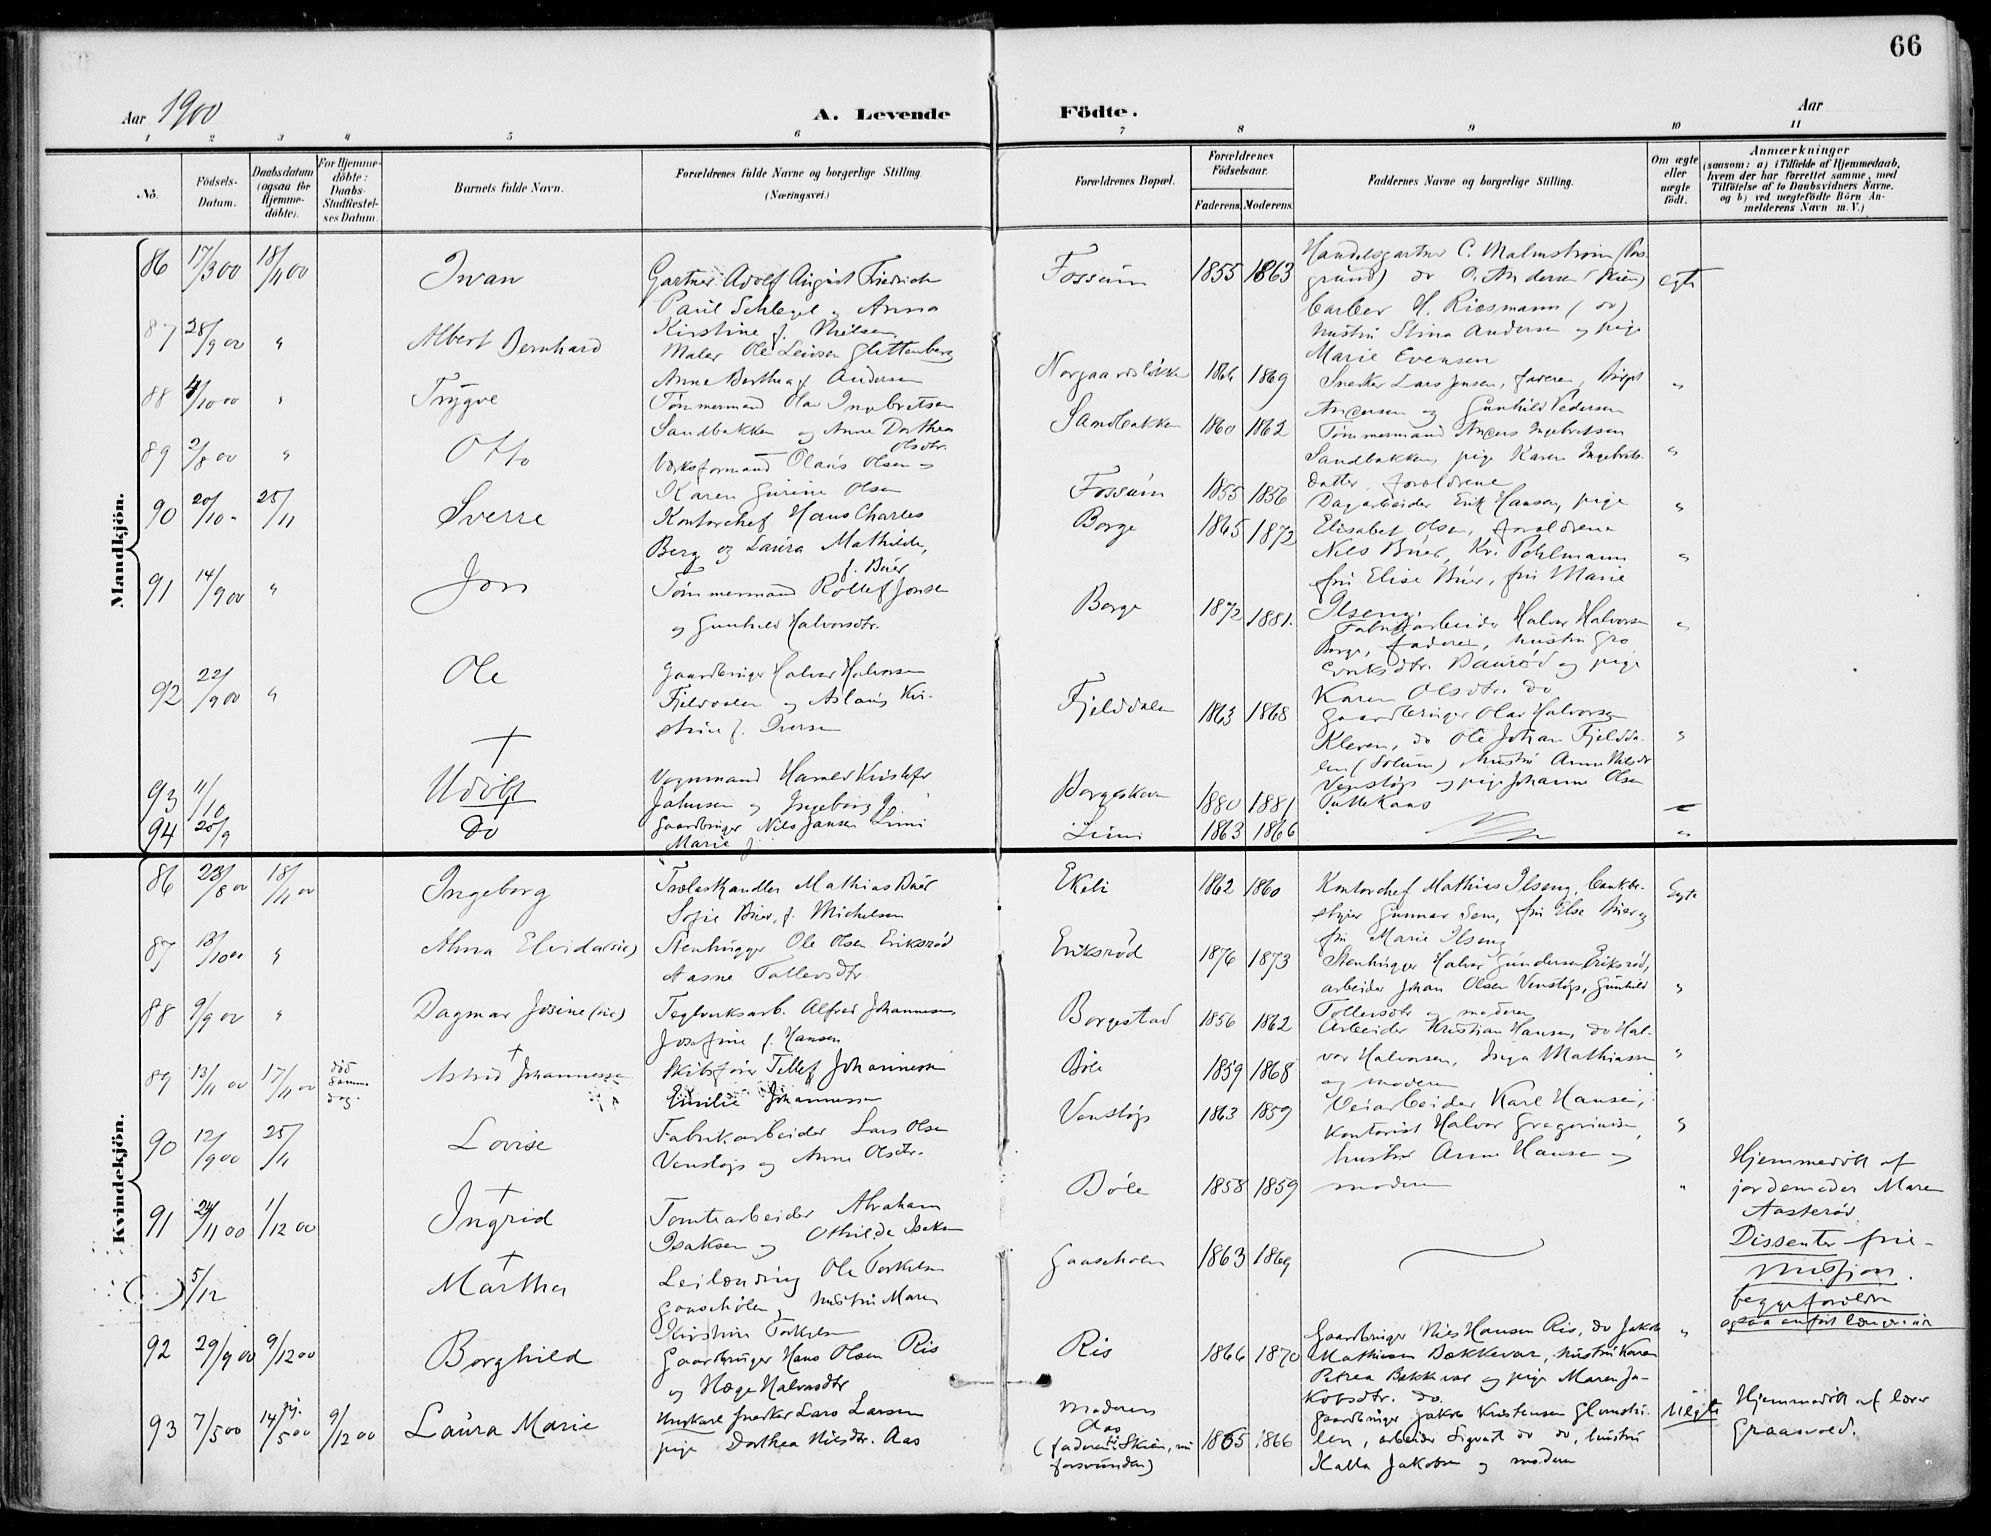 66
Aar 1900
A. Levende Födte.
Aar
1 2 3 4 5 6 7 8 9 10 11
No.
Födsels-Datum.
Daabsdatum (ogsaa for Hjemme-döbte).
For Hjemme-döbte: Daabs-Stadfæstel-ses Datum.
Barnets fulde Navn.
Forældrenes fulde Navne og borgerlige Stilling.
(Næringsvei.)
Forældrenes Bopæl.
Forældrenes Födselsaar.
Faderens. Moderens.
Faddernes Navne og borgerlige Stilling.
Om ægte eller uægte födt.
Anmærkninger
(saasom: a) i Tilfælde af Hjemmedaab, hvem der har forrettet samme, med Tilföielse af to Daabsvidners Navne. og b) ved uægtefödte Börn Anmelderens Navn m. V.)
Mandkjön.
86 17/3 00 18/11 00 Iwan Gartner Adolf August Friedrich
Paul Schlegel og Anna
Kirstine f. Nielsen
Fossum 1855 1863 Handelsgartner C. Malmstrøm (Pors-
grund) do O. Andersen (Skien)
barber H. Riesmann (do)
hustru Stina Andersen og pige
Marie Evensen
egte
87 28/9 00 " Albert Bernhard Maler Ole Leivsen Glittenberg
Anne Berthea f. Andersen
Norgaardsløkke 1866 1869 Snedker Lars Jensen, faderen, Birgit
Andersen og Gunhild Pedersen
"
88 4/10 00 " Trygve Tømmermand Olav Ingebretsen
Sandbakken og Anne Dorthea
Olsdtr.
Sandbakken 1860 1862 Tømmermand Anders Ingebretsen
Sandbakken, pige Karen Ingebrets-
datter, forældrene
"
89 2/8 00 " Otto Værksformand Olaus Olsen og
Karen Gurine Olsen
Fossum 1855 1856 Dagarbeider Erik Hansen, pige
Elisabet Olsen, forældrene
"
90 20/10 " 25/11 Sverre Kontorchef Hans Charles
Berg og Laura Mathilde,
f. Buer
Borge 1865 1872 Nils Buer, Kr. Pohlmann
fru Elise Buer, fru Marie
Ilseng.
"
91 14/9 00 " Jon Tømmermand Rollef Jonsen
og Gunhild Halvorsdtr.
Borge 1872 1881. Fabrikarbeider Halvor Halvorsen
Borge, faderen, hustru Gro
Eriksdtr. Baurød og pige
Karen Olsdtr. do
"
92 22/9 00 " Ole Gaardbruger Halvor Halvorsen
Fjelddalen og Aslaug Kir-
stine f. Iversen
Fjelddalen 1863 1868 Gaardbruger Olav Halvorsen
Kleven, do Ole Johan Fjeldda-
len (Solum), hustru Anne Nilsdtr
Venstøp og pige Johanne Olsen
Tuftekaas
"
93 11/10 Udøbt Vognmand Harald Kristofer
Jahnsen og Ingeborg
1880 1881 "
94 20/9 Do Gaardbruger Nils Jansen Limi
Marie f.
Limi 1863 1866 "
Kvindekjön.
86 28/8 00 18/11 00 Ingeborg Trælasthandler Mathias Buer
Sofie Buer, f. Michelsen
Ekeli 1862 1860 Kontorchef Mathias Ilseng, bankbe-
styrer Gunnar Sem, fru Else Buer og
fru Marie Ilseng
Egte
87 13/10 00 " Alma Elvida (sic) Stenhugger Ole Olsen Eriksrød
Aasne Tollevsdtr.
Eriksrød 1876 1873 Stenhugger Halvor Gundersen Eriksrød,
arbeider Johan Olsen Venstøp, Gunhild
Tollevsdtr og moderen
"
88 9/9 00 " Dagmar Josine (sic) Teglverksarb. Alfred Johannesen
Josefine f. Hansen
Borgestad 1856 1862 Arbeider Kristian Hansen, do Hal-
vor Halvorsen, Inga Mathiassen
og moderen
"
89 13/11 00 17/11 00 død samme dag. Astrid Johannessen Skibsfører Tellef Johannesen
Emilie Johannessen
Bøle 1859 1868
90 12/9 00 25/11 Lovise Fabrikarbeider Lars Olsen
Venstøp og Anne Olsdtr.
Venstøp 1863 1859 Veiarbeider Karl Hansen,
Kontorist Halvor Gregoriussen,
hustru Anne Hansen og
moderen
"
91 24/11 00 1/12 00 Ingrid Tomtearbeider Abraham
Isaksen og Othilde Isaksen
Bøle 1858 1859 " Hjemmedøbt af
jordemoder Maren
Aasterød
( ) 5/12 Martha Leilænding Ole Torkelsen
Gaasehølen og hustru Maren
Kirstine Torkelsen
Gaaseholen 1863 1869 Dissenter fri-
mission.
begge forældre
92 29/9 00 9/12 00 Borghild Gaardbruger Hans Olsen Ris
og Hæge Halvorsdtr
Ris 1866 1870 Gaardbruger Nils Hansen Ris, do Jakob
Mathiesen Bækkevar, hustru Karen
Petrea Bækkevar og pige Maren Ja-
kobsdtr. do.
"
93 7/5 00 14/5 00 9/12 00 Laura Marie Ungkarl snedker Lars Larsen
pige Dorthea Nilsdtr. Aas
Moderens
Aas
(faderens i Skien, nu
forsvunden)
1865 1866 Gaardbruger Jakob Kristensen Glomstu-
len, arbeider Sigvart do do, hustru
Kalla Jakobsen og moderen
Uægte
Hjemmedøbt af lærer
Graasvold.